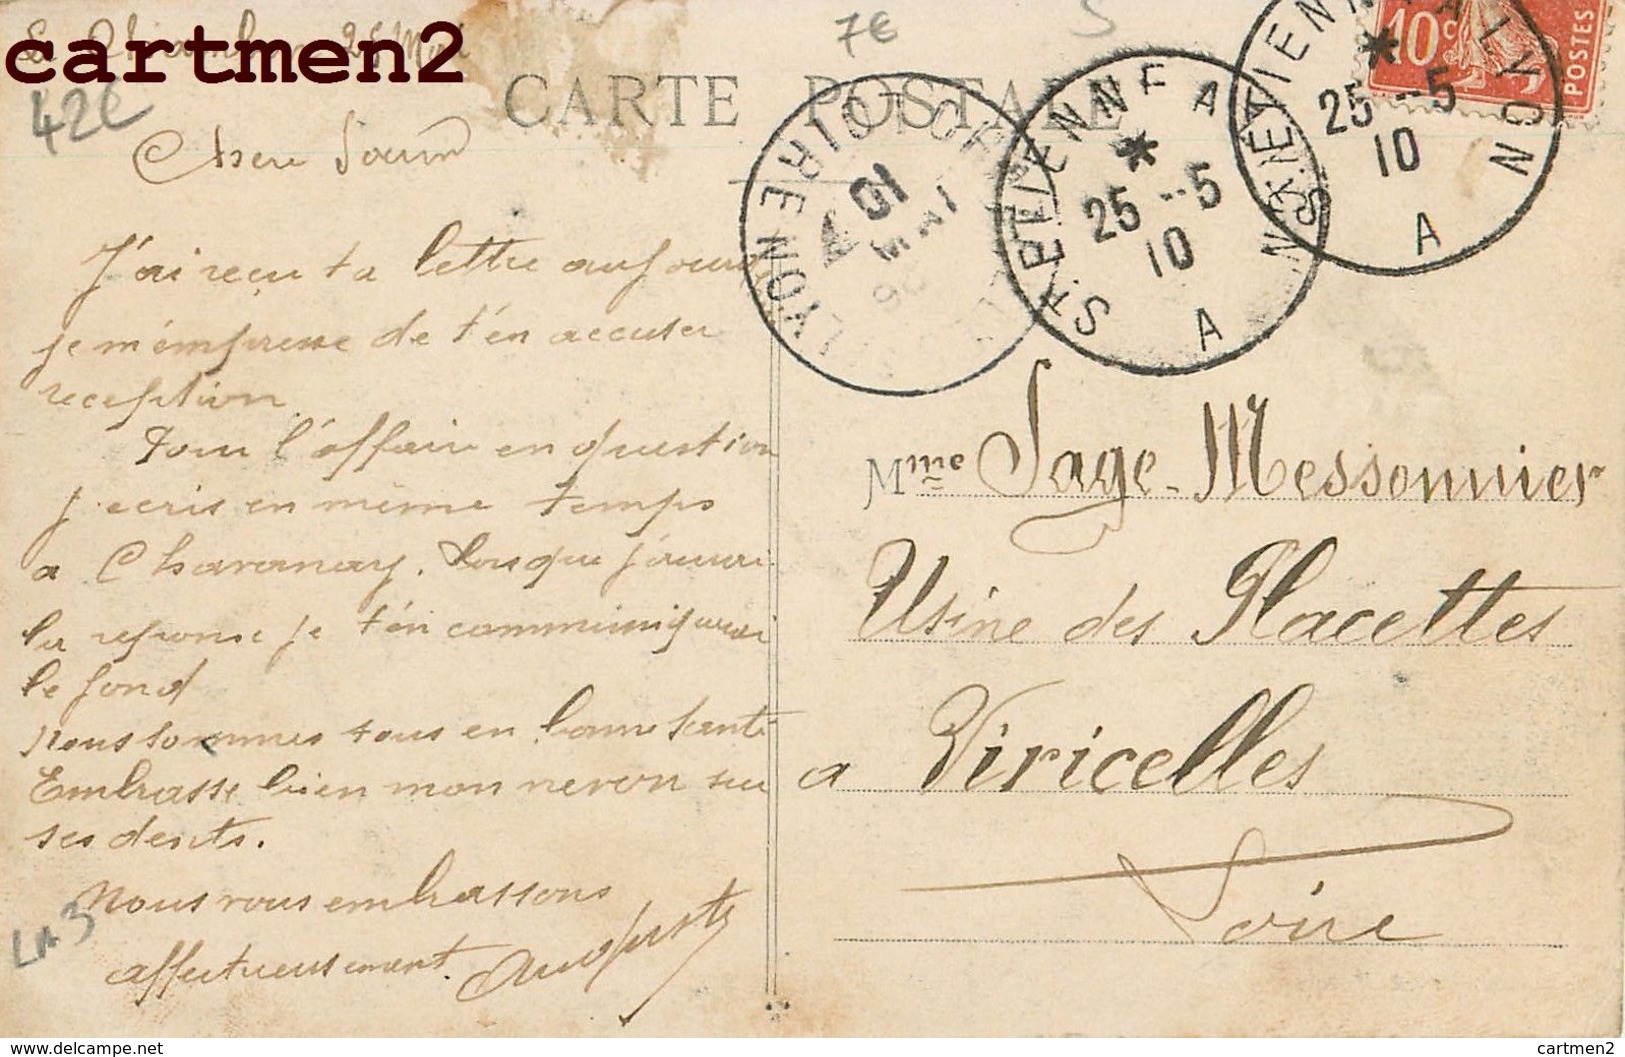 cartmen2
25 Mai
42€
7€
CARTE POSTALE
10c
POSTES
ST ETIENNE A LYON
25 -5
10
A
ST ETIENNE A LYON
25 -5
10
A
LYON
LOIRE
10
MAI
Chère Soeur
J'ai reçu ta lettre aujourd
je m'empresse de t'en accuser
reception
Pour l'affaire en question
j'ecris en même temps
a Chavanay. Lorsque j'aurai
la reponse je t'en communiquerai
le fond
Nous sommes tous en bonne santé
Embrasse bien mon neveu sur
ses dents.
Nous vous embrassons
affectueusement. Auguste
LA 3
Mme Sage-Messonnier
Usine des Placettes
a Viricelles
Loire
delcampe.net
cartmen2